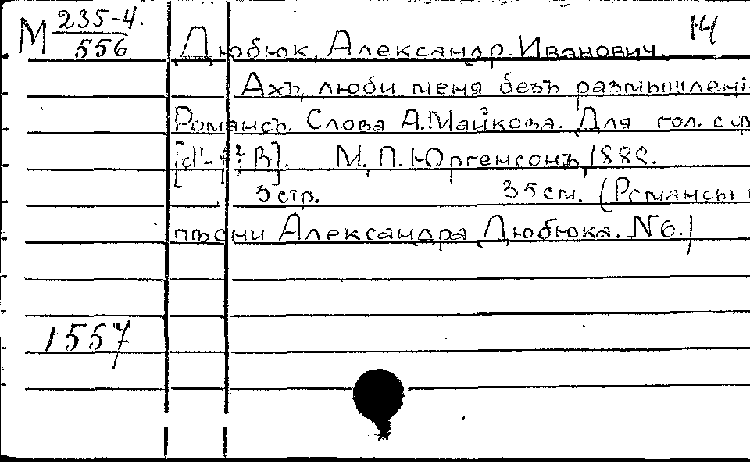 М 235-4. 14
556 Дюбюк, Александр Иванович.
Ахъ, люби меня безъ размышленій
Романсъ. Слова А.Майкова. Для гол. с
М., П. Юргенсонъ, 1882.
5 стр. 35 см. (Романсы
пѣсни Александра Дюбюка. N6.)
1557